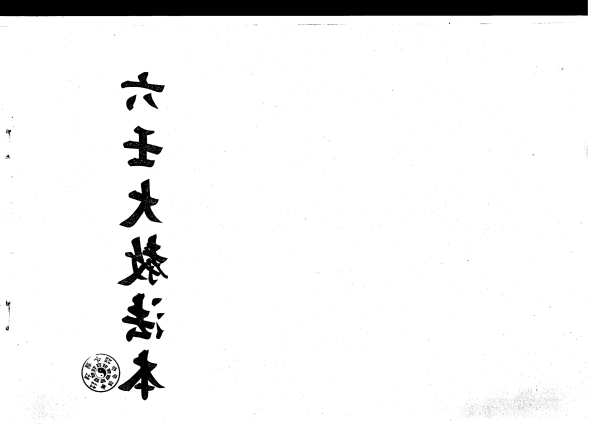 六壬大教法本